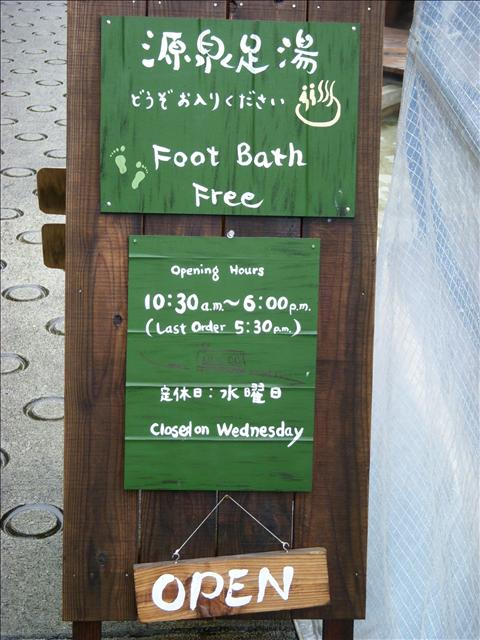 源泉足湯
どうぞお入りください
Foot Bath
Free
Opening Hours
10:30a.m.~6:00p.m.
(Last Order 5:30p.m.)
定休日:水曜日
Closed on Wednesday
OPEN